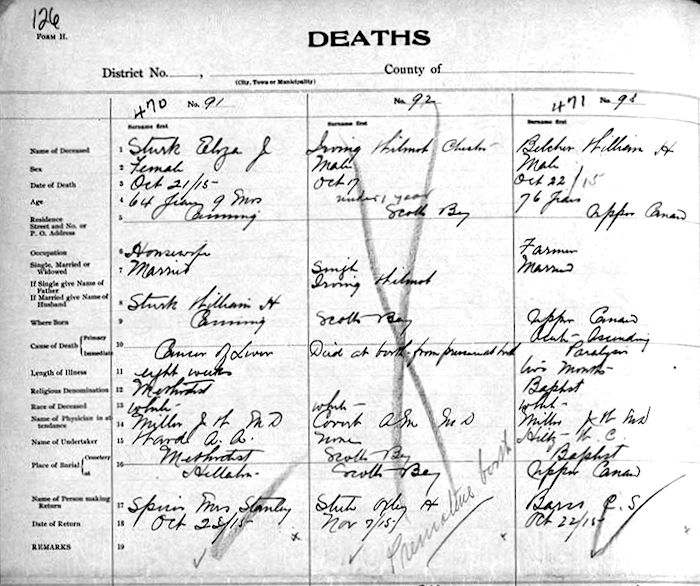 126
FORM H.
DEATHS
District No. , County of
(City, Town or Municipality)
470 No. 91 No. 92 471 No. 93
Surname first Surname first Surname first
Name of Deceased 1 Sturk Eliza J Irving Wilmot Chester Belcher William H
Sex 2 Female Male Male
Date of Death 3 Oct 21/15 Oct 17 Oct 22/15
Age 4 64 Years 9 Mos under 1 year 76 Years
Residence Street and No. or P. O. Address 5 Canning Scotts Bay Upper Canard
Occupation 6 Housewife Farmer
Single, Married or Widowed 7 Married Single Married
If Single give Name of Father Irving Wilmot
If Married give Name of Husband 8 Sturk William H
Where Born 9 Canning Scotts Bay Upper Canard
Cause of Death Primary Immediate 10 Cancer of Liver Died at birth from premature birth Acute Ascending Paralysis
Length of Illness 11 eight weeks two months
Religious Denomination 12 Methodist Baptist
Race of Deceased 13 white white white
Name of Physician in attendance 14 Miller J W MD Covert A M MD Miller J W MD
Name of Undertaker 15 Ward A. A. None Hiltz W C
Place of Burial Cemetery at 16 Methodist Scotts Bay Baptist
Scotts Bay Upper Canard
Name of Person making Return 17 Spicer Mrs Stanley H Barss C S
Date of Return 18 Oct 25/15 x Nov 7/15 x Oct 22/15
Premature birth
REMARKS 19